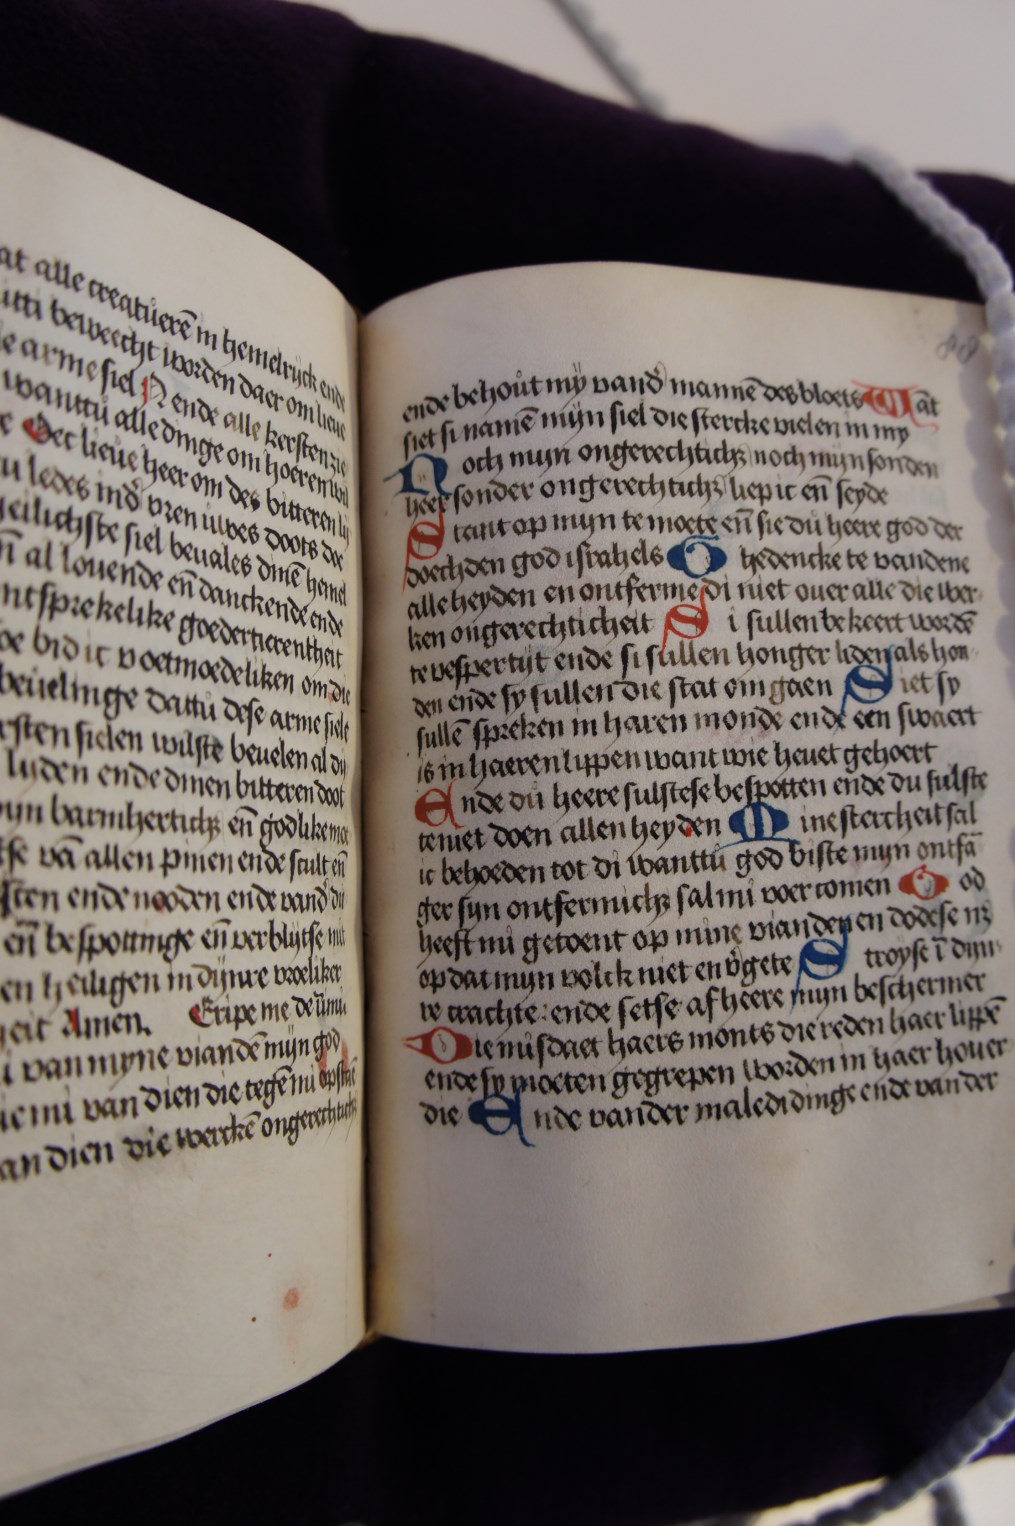 at alle creatůerē in hemelrijck ende
itti beweecht worden daer om lieue
e arme siel N ende alle kersten zie
wanttů alle dinge om hoeren wil
e Der lieůe heer om des bitteren lij
u ledes ind vren uwes doots doe
heilichste siel beuales dinē hemel
n al louende en̄ danckende ende
ntsprekelike goedertierentheit
oe bid ic voetmoedeliken om die
beuelinge dattů dese arme siele
rsten sielen wilste beuelen al dij
lijden ende dinen bitteren doot
ijn barmherticħz en̄ godlike
se vā allen pinen ende scult en̄
sten ende nooden ende vand
en̄ bespottinge en̄ verblijtse
en heiligen in dijnre vroeliker
heit Amen. Eripe me de
i van myne viandē mijn god
e mi van dien die tegē mi opstaē
an dien die werckē ongerechticħ
88
ende behoůt mÿ vand mannē des bloets Wāt
siet si namē mijn siel die stercke vielen in my
Noch mijn ongerechticħz noch mijn sonden
heer sonder ongerechticħz liep ic en̄ seyde
Stant op mijn te moete en̄ sie dů heere god der
doechden god israhels Ghedencke te vandene
alle heyden en ontferme di niet ouer alle die wer-
ken ongerechticheit Si sullen bekeert wordē
te vespertijt ende si sullen honger liden als hon-
den ende sy sullen die stat om gaen Siet sy
sullē spreken in haren monde ende een swaert
is in haeren lippen want wie heuet gehoert
Ende dů heere sulstese bespotten ende du sulste
teniet doen allen heyden Mine stercheit sal
ic behoeden tot di wanttů god biste mijn ontfā
ger sijn ontfermicħz sal mi voercomen God
heeft mi getoent op mine vianden en dodese nz
op dat mijn volck niet en v̉gete Stroyse ī dijn-
re crachte: ende setse af heere mijn beschermer
Die misdaet haers monts die reden haer lippē
ende sy moeten gegrepen worden in haer houer
die Ende vander maledidinge ende van der